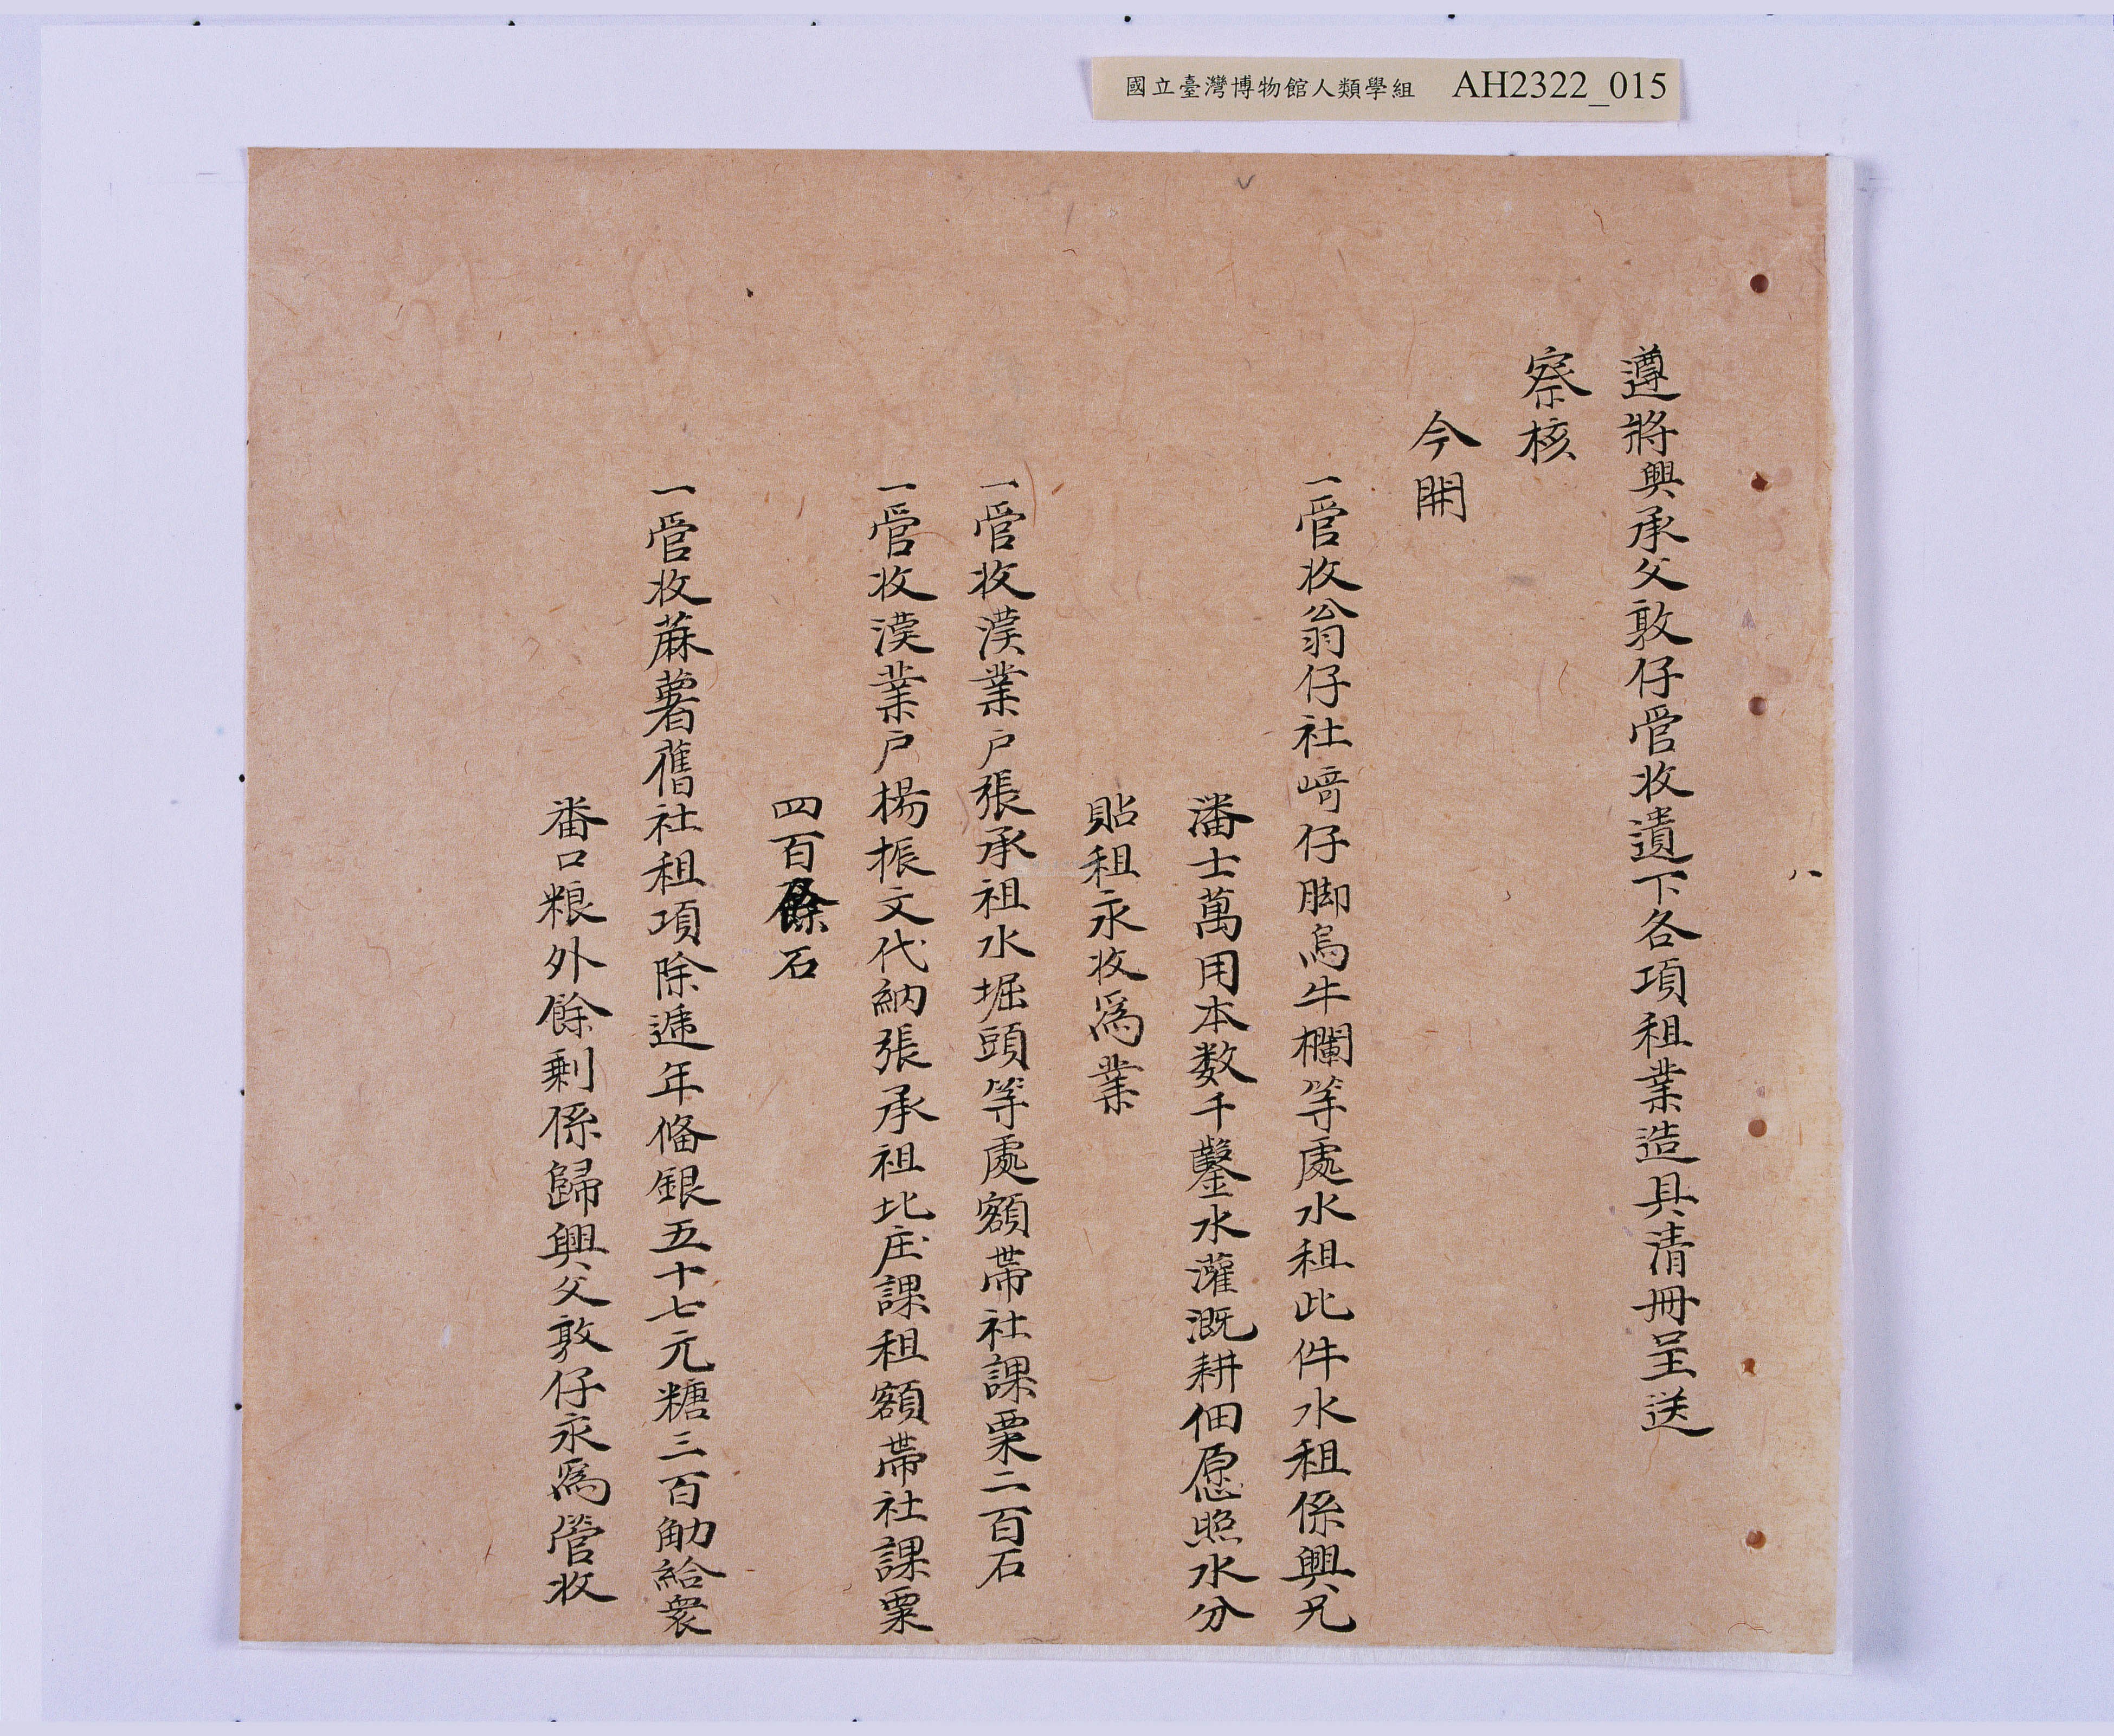 國立臺灣博物館人類學組 AH2322_015
遵將興承父敦仔管收遺下各項租業造具清冊呈送
察核
今開
一管收翁仔社﨑仔脚烏牛欄等處水租此件水租係興兄
潘士萬用本数千鑿水灌溉耕佃愿照水分
貼租永收為業
一管收漢業戶張承祖水堀頭等處額帶社課粟二百石
一管收漢業戶楊振文代納張承祖北庄課租額帶社課粟
四百餘石
一管收蔴薯舊社租項除遞年俻銀五十七元糖三百觔給衆
番口粮外餘剩係歸興父敦仔永為管收
八